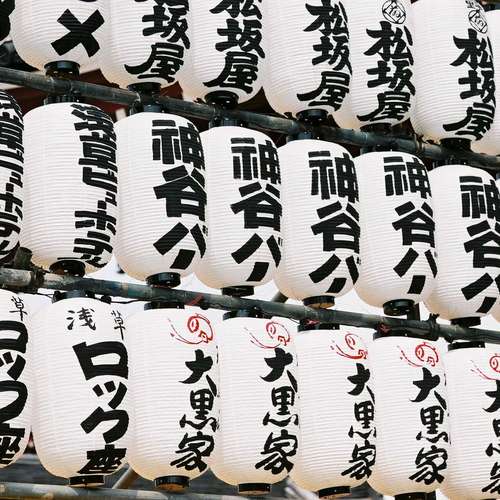 松坂屋
松坂屋
松坂屋
松坂屋
松坂屋
浅草ビューホテル
浅草ビューホテル
神谷バー
神谷バー
神谷バー
神谷バー
神谷バー
草
ロック座
浅草
ロック座
大黒家
大黒家
大黒家
大黒家
大黒家